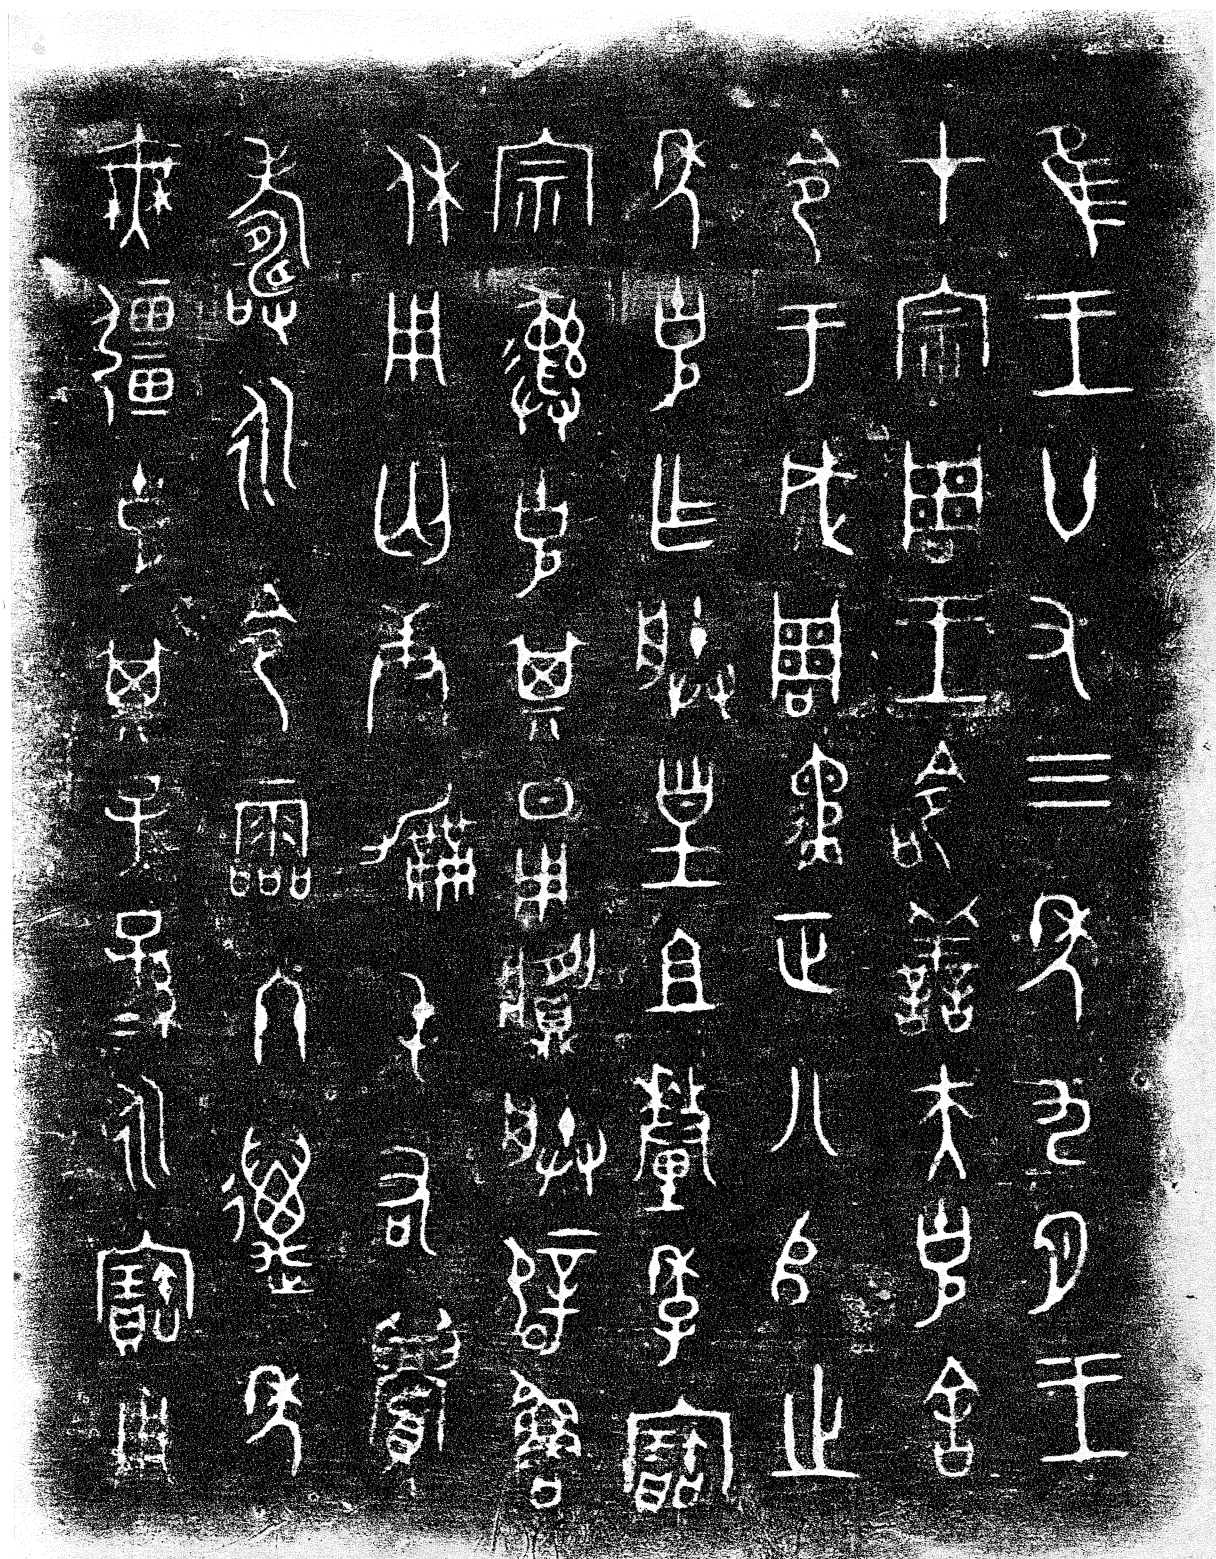 隹王廿又三年九月王
才宗周王命善夫克舍
令于成周遹正八𠂤之
年克乍朕皇且釐季寶
宗彝克其日用𩰫朕辟魯
休用匄康勵屯右眉
壽永令霝冬邁年
無疆克其子子孫孫永寶用